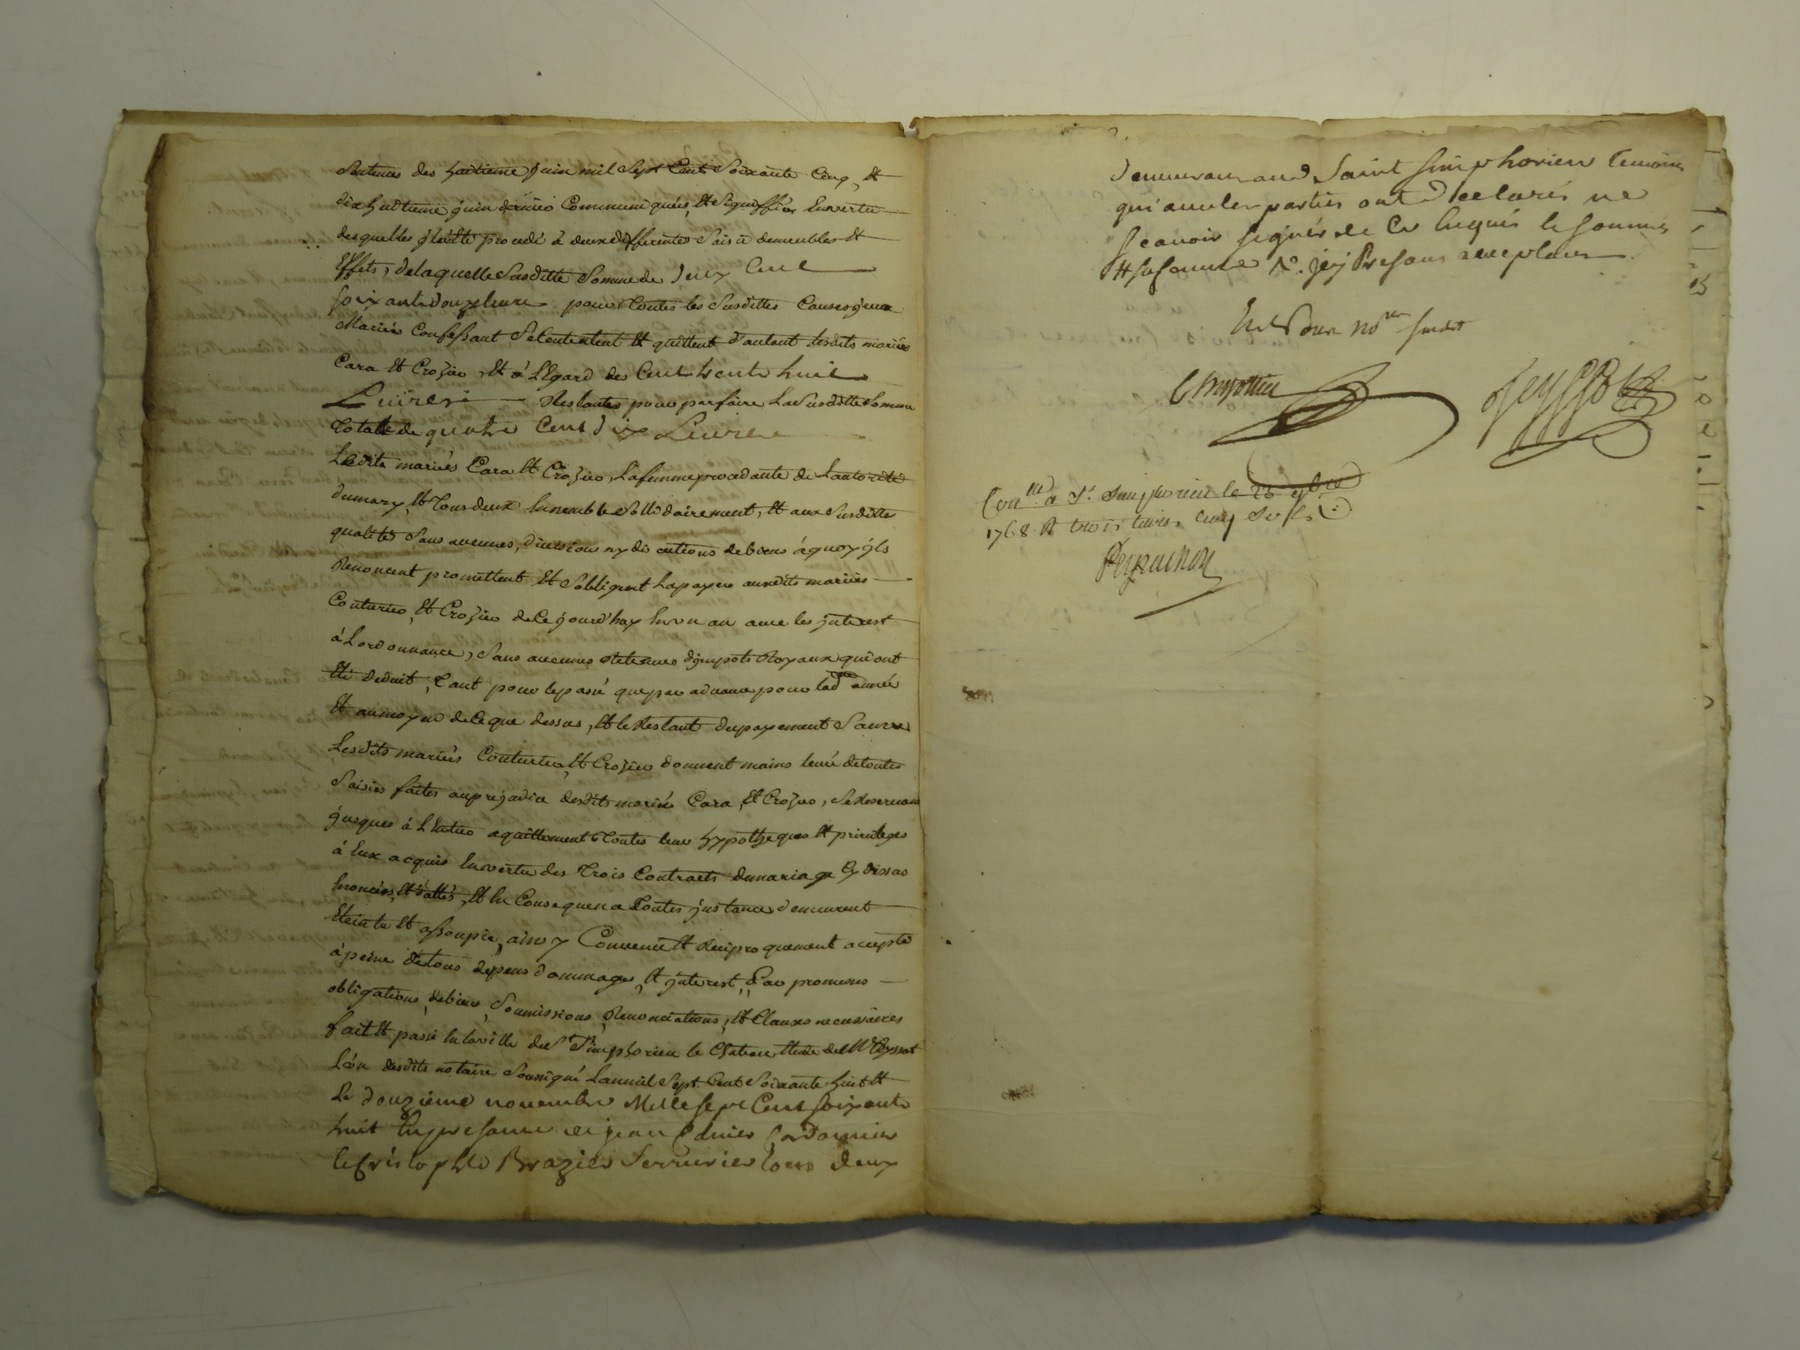 Sentences des huitieme juin mil Sept Cent Soixante Cinq, Et
dix huitieme juin dernier Communiquées, Et Signiffiées Envertu
desquelles jl a Eté procedé à deux differentes Saisie demeubles Et
Effets, delaquelle Susditte Somme de deux Cent
Soixante douze livres pour toutes les Susdittes Causes yceux
Mariés Confessant Se Contentent Et quittent d'autant lesdits mariés
Cara Et Crozier, Et à L'Egard de Cent trente huit
Livres Restantes pour parfaire La Susditte Somme
Totalle de quatre Cent dix Livres
Lesdits mariés Cara Et Crozier, La femme procedante de Lautorité
dumary, Et Tous deux Ensemble Sollidairement, Et aux Susdittes
qualités Sans aucunes, division ny discutions debiens àquoy jls
Renoncent promettent Et Sobligent Lapayer auxdits mariés
Couturier, Et Crozier de Ce jourd'huy En un an avec les jnterest
à Lordonnance, Sans aucunes Retenues djmpots Royaux qui ont
Eté deduit, Tant pour le passé que par advance pour ladte année
Et aumoyen deCeque dessus, Et le Restant dupayement
Lesdits mariés Couturier, Et Crozier donnent mains levée detoutes
Saisies faites au prejudice desdits mariés Cara, Et Crozier, Se Reservant
jusques à L'Entier aquittement Toutes leur hypotheques Et privileges
à Eux acquis Envertu des Trois Contracts demariage Cy dessus
Enoncés, Et dattés, Et En Consequence Toutes jnstances demeurent
Eteinte Et assoupie, ainsy Convenu Et Reciproquement accepté
à peine detous depens dommages, Et jnterest, Par promesses
obligations, debiens, Soumissions, Renonciations, Et Clauses necessaires
fait Et passé En la ville de St Simphorien le Chateau Etude de Me
L'un desdits notaire Soussigné Lan mil Sept Cent Soixante huit Et
Le douzième novembre Mille Sept Cent Soixante
huit En presance de jean Cordonnier
Et Cristophle Brazier Serrurier tous deux
demeurant aud Saint Simphorien Temoins
qui avec les parties ont declarés ne
Scavoir Signer de Ce Enquis le Sommés
Et
Et Pour nore Susdit
Conlle a St. Simphorien le 23 9bre
1768 R trois livres cinq Sols